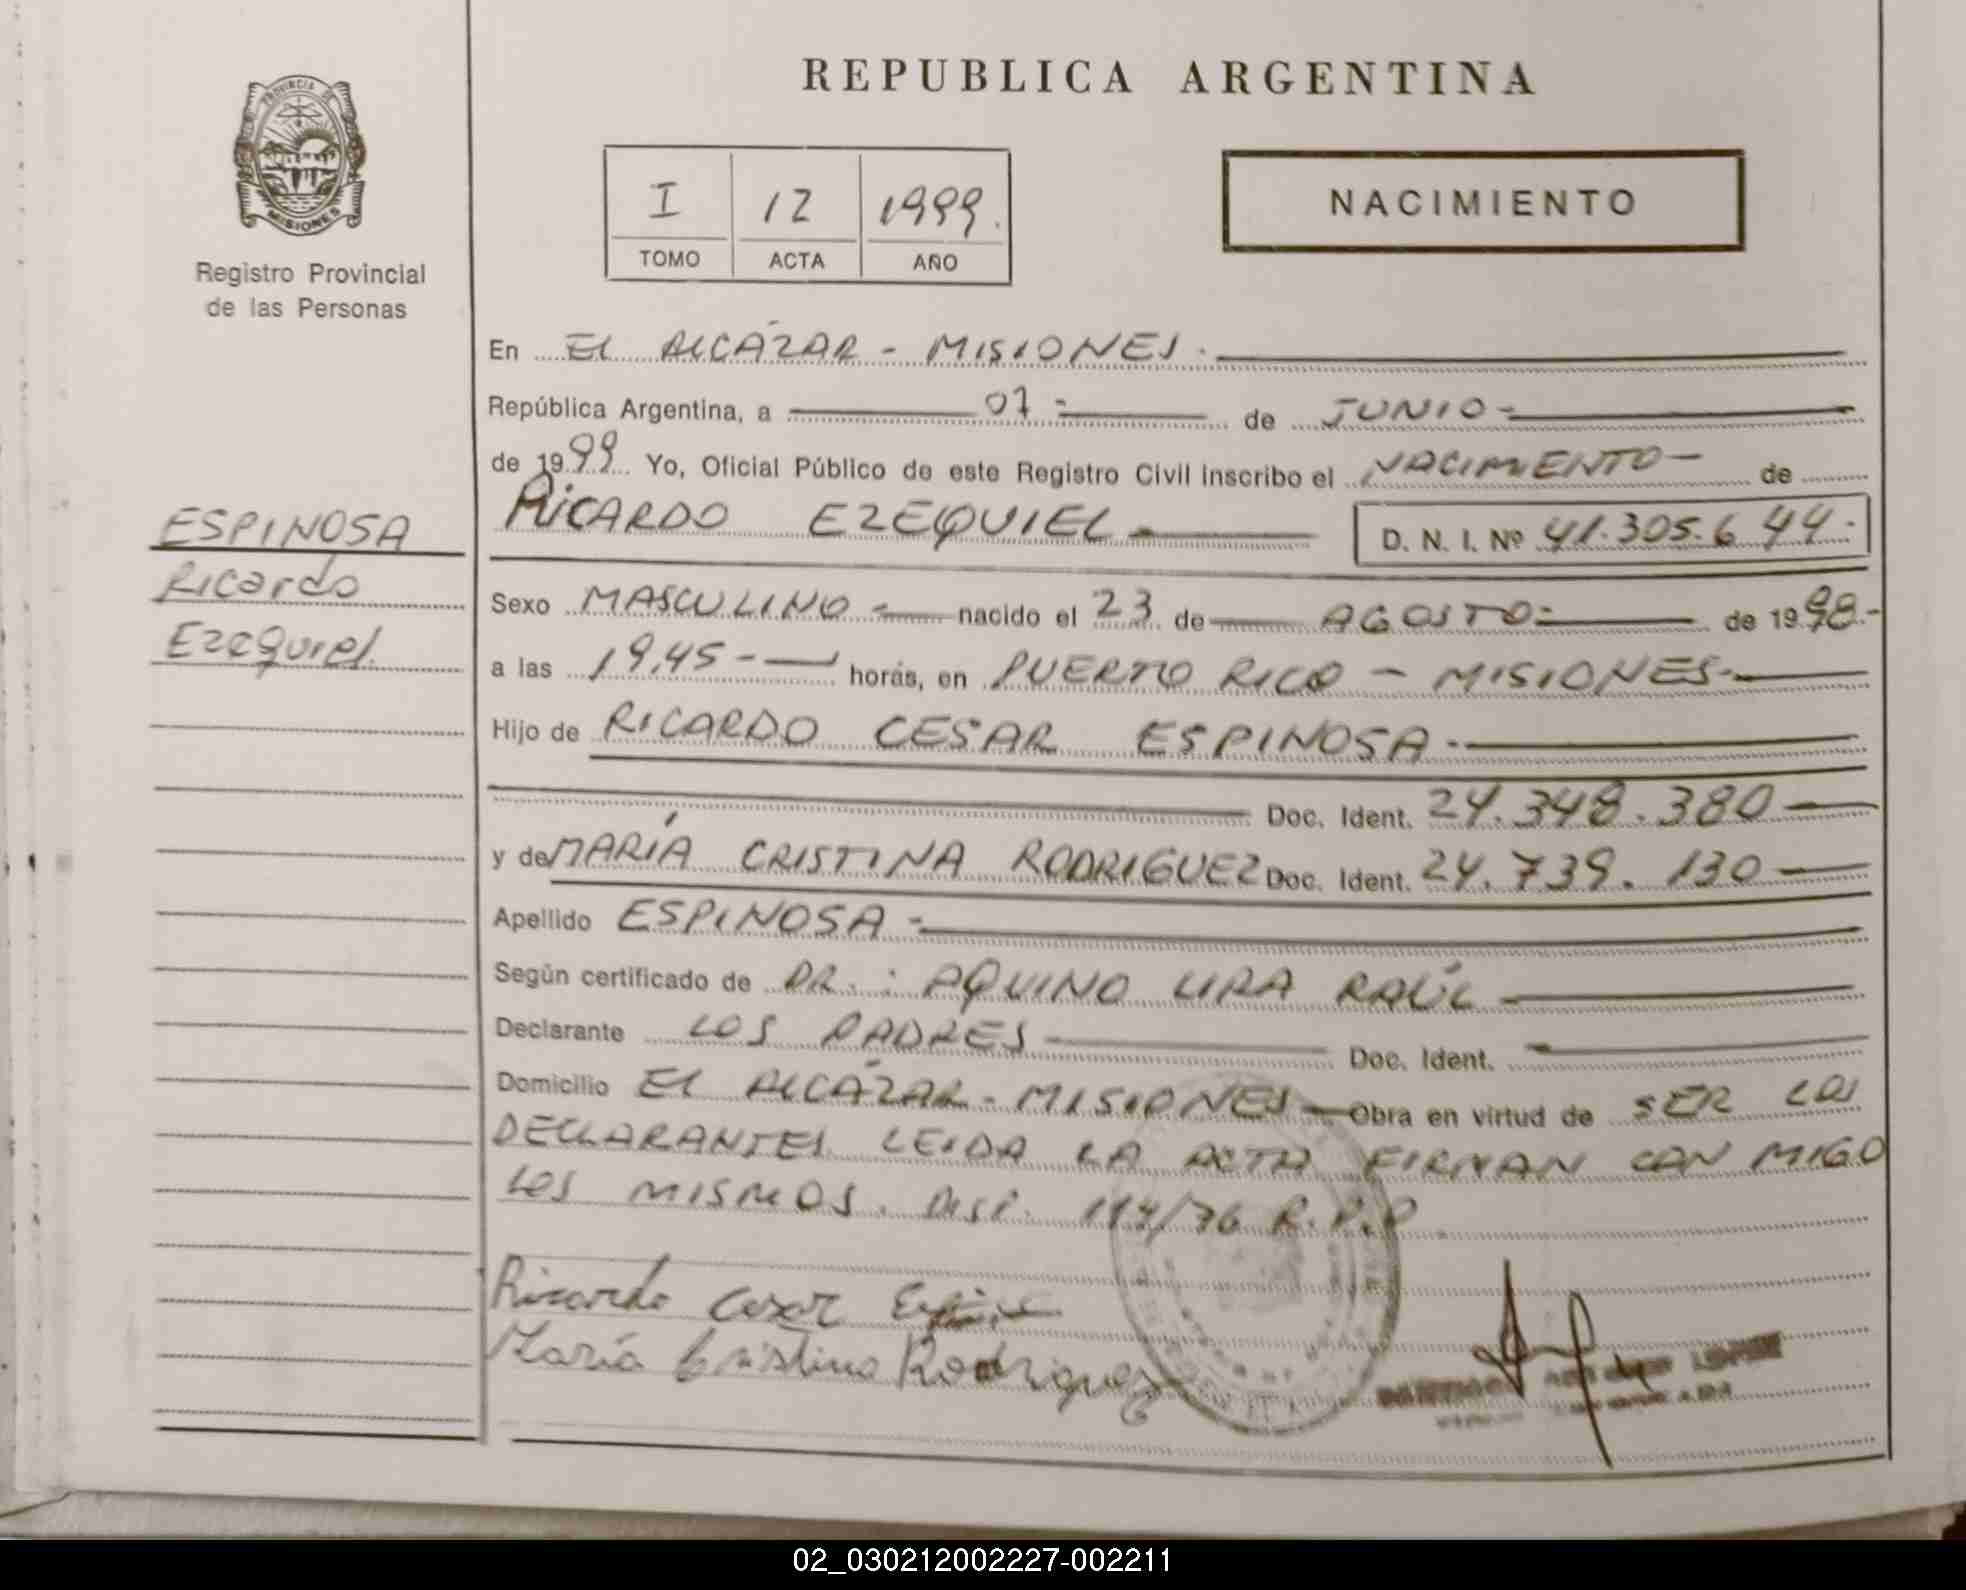 PROVINCIA DE
MISIONES
Registro Provincial
de las Personas
REPUBLICA ARGENTINA
I 12 1999.
TOMO ACTA AÑO
NACIMIENTO
En El ALCÁZAR - MISIONES.
República Argentina, a 07 - de JUNIO -
de 1999 Yo, Oficial Público de este Registro Civil inscribo el NACIMIENTO - de
RICARDO EZEQUIEL - D. N. I. Nº 41.305.644.-
ESPINOSA
Ricardo
Ezequiel.
Sexo MASCULINO - nacido el 23 de AGOSTO - de 1998.-
a las 19,45 - horas, en PUERTO RICO - MISIONES -
Hijo de RICARDO CESAR ESPINOSA -
Doc. Ident. 24.348.380
y de MARÍA CRISTINA RODRIGUEZ Doc. Ident. 24.739.130
Apellido ESPINOSA -
Según certificado de DR.: AQUINO LIRA RAÚL
Declarante LOS PADRES Doc. Ident.
Domicilio El ALCÁZAR - MISIONES - Obra en virtud de SER LOS
DECLARANTES LEIDA LA ACTA FIRMAN CON MIGO
LOS MISMOS. DISP. 114/76 R.P.P
Ricardo Cesar
María Cristina Rodriguez
02_030212002227-002211